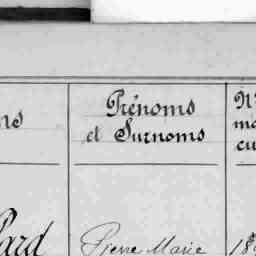 ms
Prénoms
et Surnoms
Nº
ma
cu
Pierre Marie
18